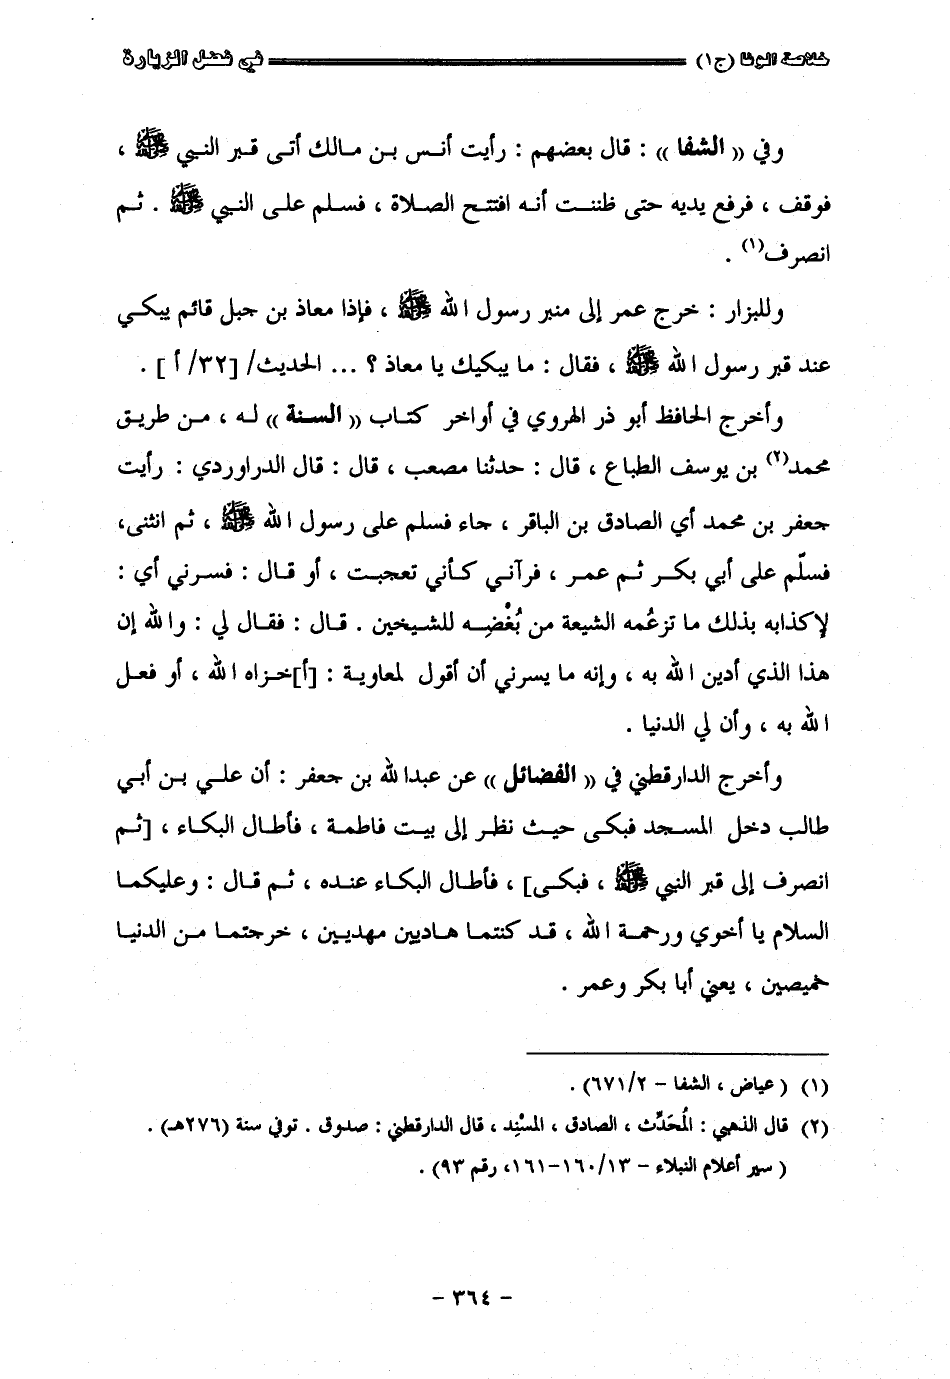 خلاصة الوفا (ج١) في فضل الزيارة
وفي (( الشفا )) : قال بعضهم : رأيت أنس بن مالك أتى قبر النبي ﷺ ،
فوقف ، فرفع يديه حتى ظننت أنه افتتح الصلاة ، فسلم على النبي ﷺ . ثم
انصرف(١) .
وللبزار : خرج عمر إلى منبر رسول الله ﷺ ، فإذا معاذ بن جبل قائم يبكي
عند قبر رسول الله ﷺ ، فقال : ما يبكيك يا معاذ ؟ ... الحديث/ [٣٢/ أ ] .
وأخرج الحافظ أبو ذر الهروي في أواخر كتاب (( السنة )) له ، من طريق
محمد(٢) بن يوسف الطباع ، قال : حدثنا مصعب ، قال : قال الدراوردي : رأيت
جعفر بن محمد أي الصادق بن الباقر ، جاء فسلم على رسول الله ﷺ ، ثم انثنى،
فسلّم على أبي بكر ثم عمر ، فرآني كأني تعجبت ، أو قال : فسرني أي :
لإكذابه بذلك ما تزعُمه الشيعة من بُغْضِه للشيخين . قال : فقال لي : والله إن
هذا الذي أدين الله به ، وإنه ما يسرني أن أقول لمعاوية : [أ]خزاه الله ، أو فعل
الله به ، وأن لي الدنيا .
وأخرج الدارقطني في (( الفضائل )) عن عبدالله بن جعفر : أن علي بن أبي
طالب دخل المسجد فبكى حيث نظر إلى بيت فاطمة ، فأطال البكاء ، [ثم
انصرف إلى قبر النبي ﷺ ، فبكى] ، فأطال البكاء عنده ، ثم قال : وعليكما
السلام يا أخوي ورحمة الله ، قد كنتما هاديين مهديين ، خرجتما من الدنيا
خميصين ، يعني أبا بكر وعمر .
(١) ( عياض ، الشفا – ٦٧١/٢) .
(٢) قال الذهبي : المُحَدِّث ، الصادق ، المسْنِد ، قال الدارقطني : صدوق . توفي سنة (٢٧٦هـ) .
( سير أعلام النبلاء – ١٦٠/١٣-١٦١، رقم ٩٣) .
- ٣٦٤ -